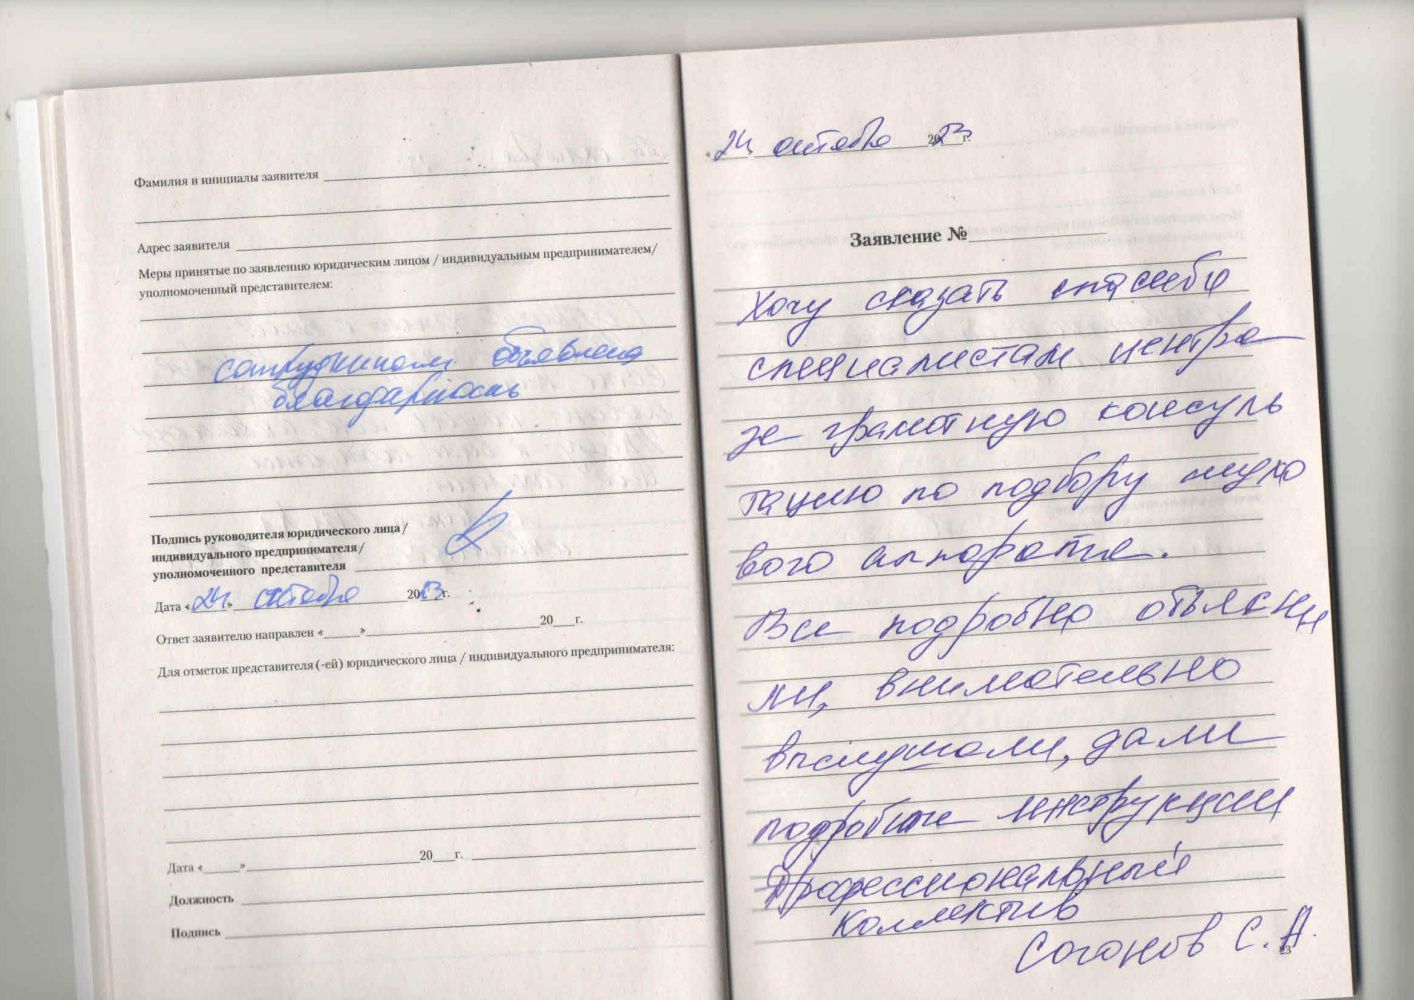 Фамилия и инициалы заявителя
Адрес заявителя
Меры принятые по заявлению юридическим лицом / индивидуальным предпринимателем/
уполномоченный представителем:
сотрудникам объявлена
благодарность
Подпись руководителя юридического лица/
индивидуального предпринимателя/
уполномоченного представителя
Дата «24» октября 2023г.
Ответ заявителю направлен «_____»____________________20___г.
Для отметок представителя (-ей) юридического лица / индивидуального предпринимателя:
Дата «_____»____________________20___г.
Должность
Подпись
24 октября 2023г.
Заявление №
Хочу сказать спасибо
специалистам центра
за грамотную консуль
тацию по подбору слухо
вого аппарата.
Все подробно объясни
ли, внимательно
выслушали, дали
подробные инструкции
Профессиональный
коллектив
Соганов С.А.
23